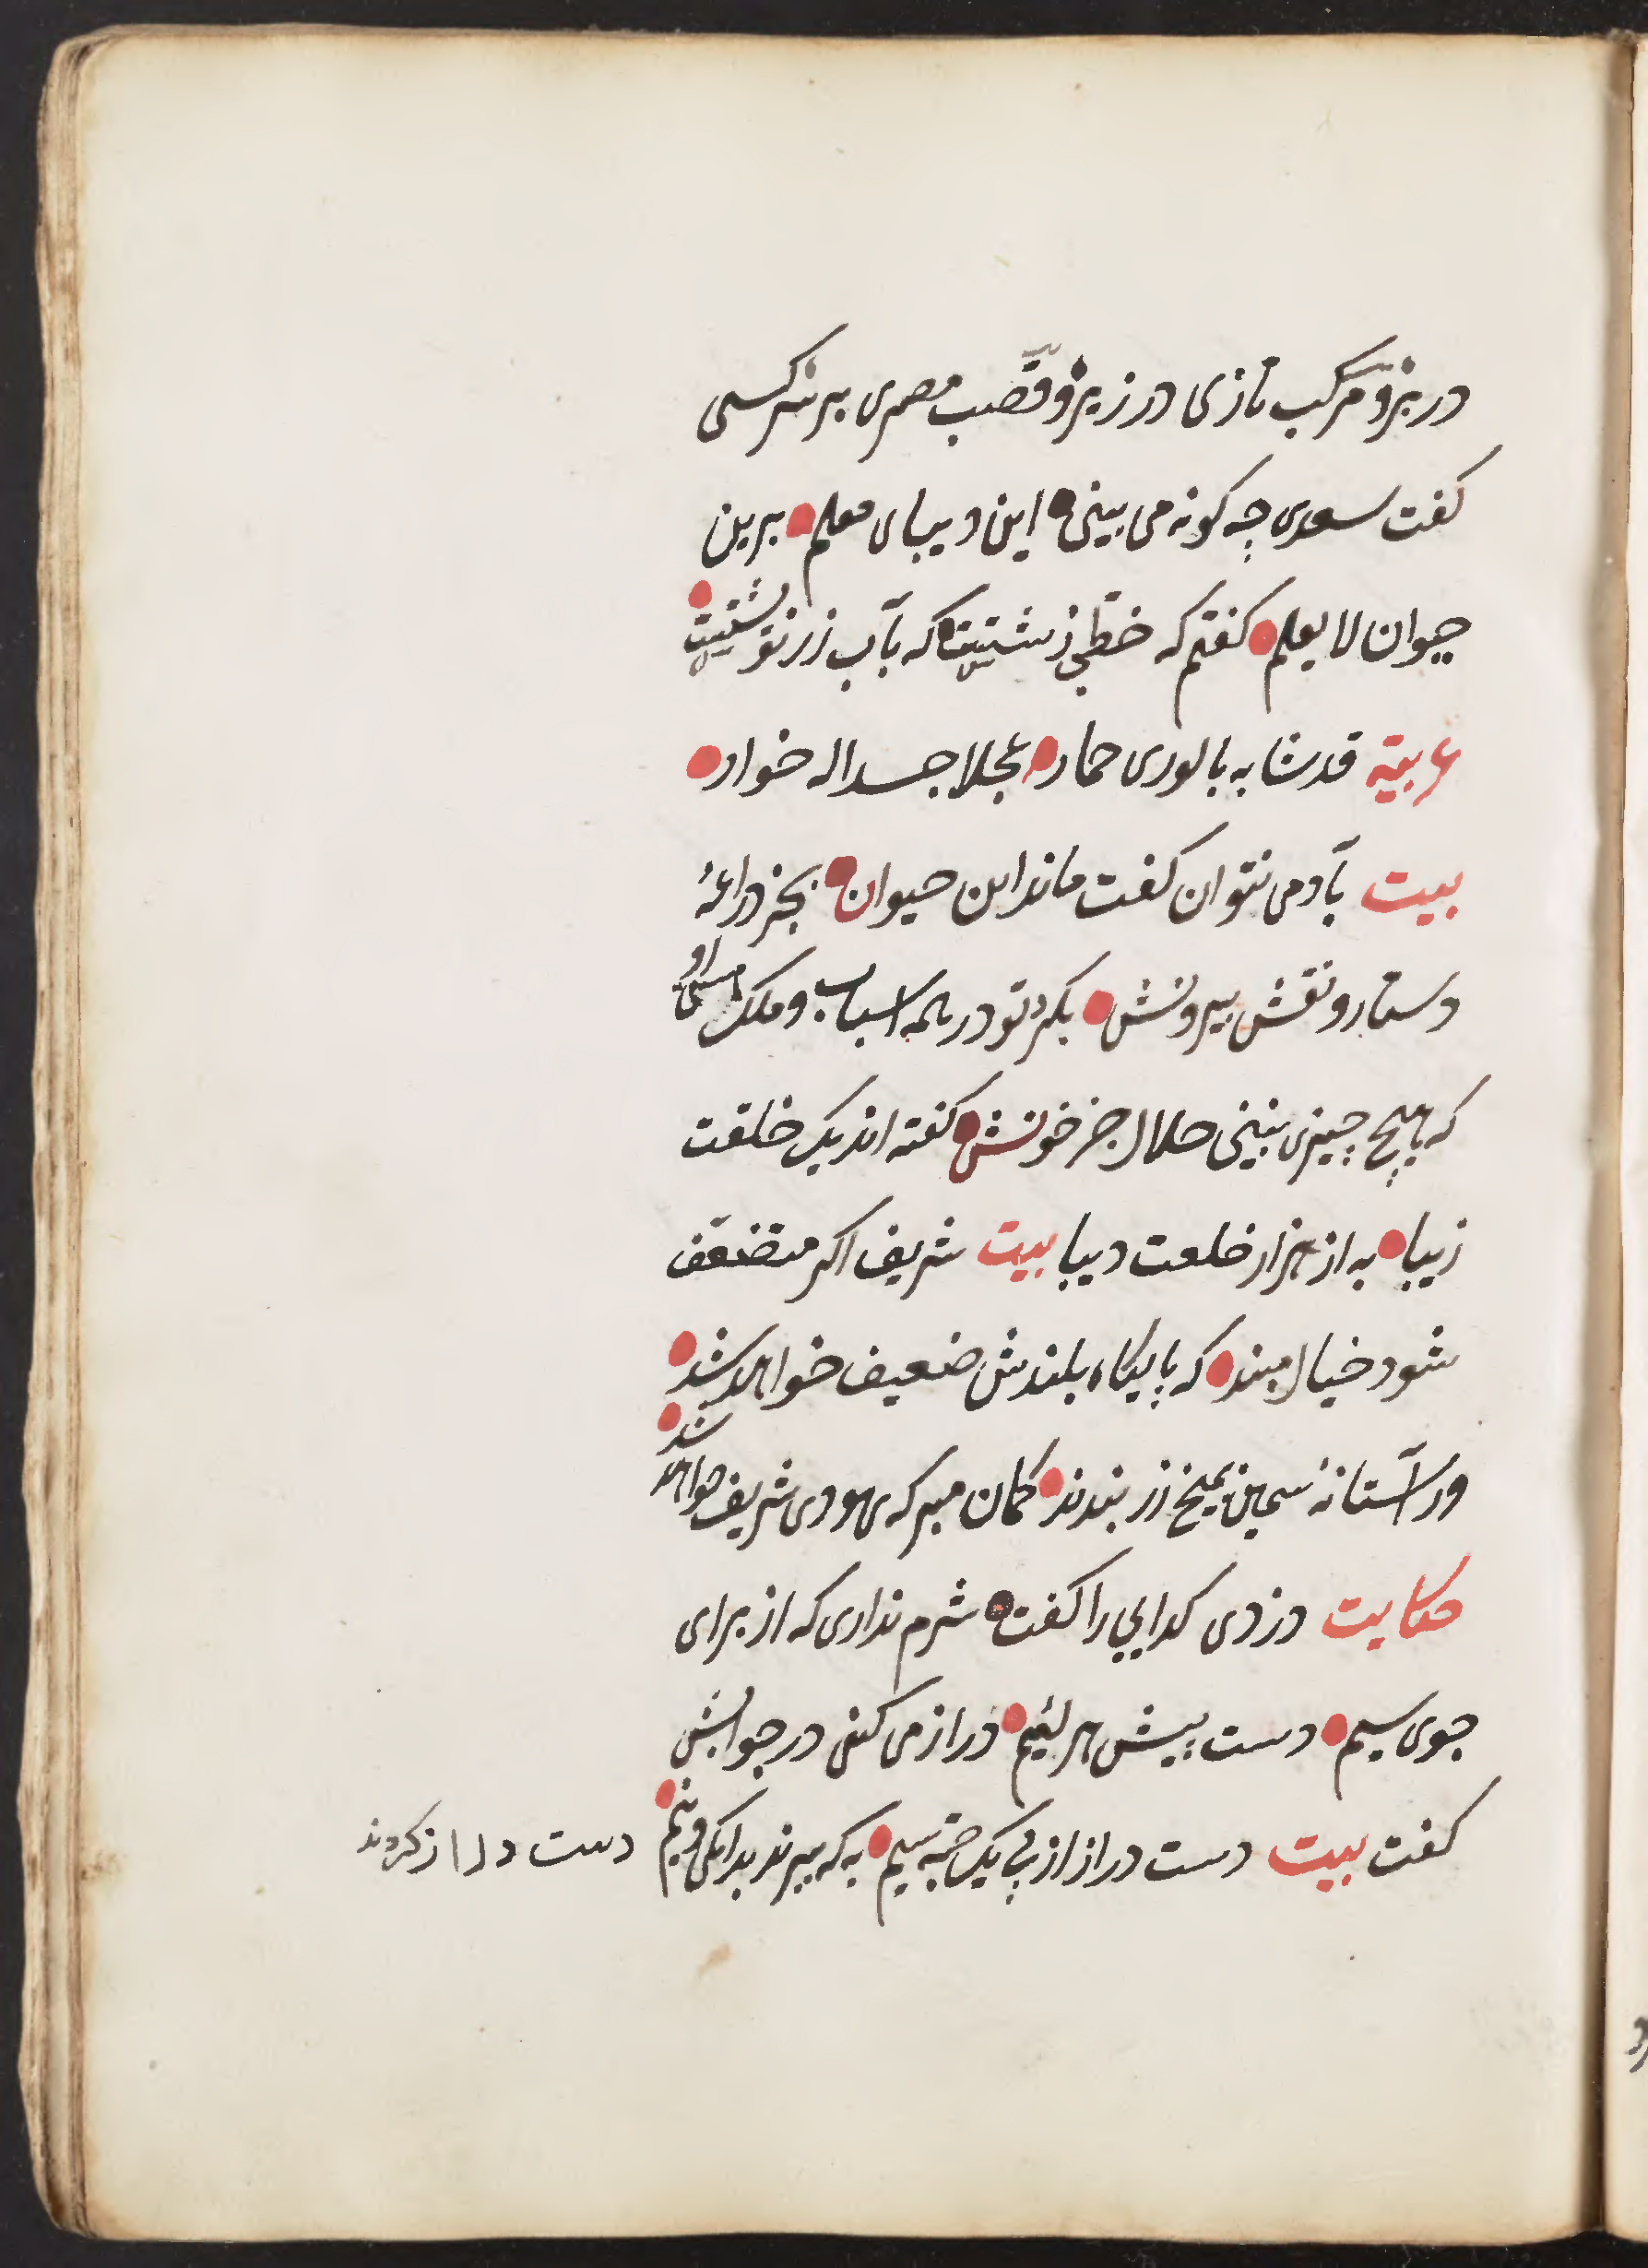 در بر و مرکب تازی در زیر و قصب مصری بر سر کسی
کفت سعدی چه کونه می بینی این دیبای معلم برین
حیوان لا یعلم کفتم که خطی زشتیست که بآب زر نوشتیست
عربیة قد شابه بالوری حمار عجلا جسدا له خوار
بیت بآدمی نتوان کفت ماند این حیوان بجز دراعهٔ
دستار و نقش بیرونش بکرد تو در همه اسباب و ملک هستی او
که هیچ چیزی نبینی حلال جز خونش کفته اند یک خلقت
زیبا به از هزار خلعت دیبا بیت شریف اکر متضعف
شود خیال مبند که پایکاه بلندش ضعیف خواهد شد
ور آستانهٔ سیمین بمیخ زر بندند کمان مبر که یهودی شریف خواهد شد
حکایت دزدی کدایی را کفت شرم نداری که از برای
جوی سیم دست پیش هر لئیم دراز می کنی در جوابش
کفت بیت دست دراز از پی یک حبه سیم به که ببرند بدانکی و نیم
دست دراز کردند